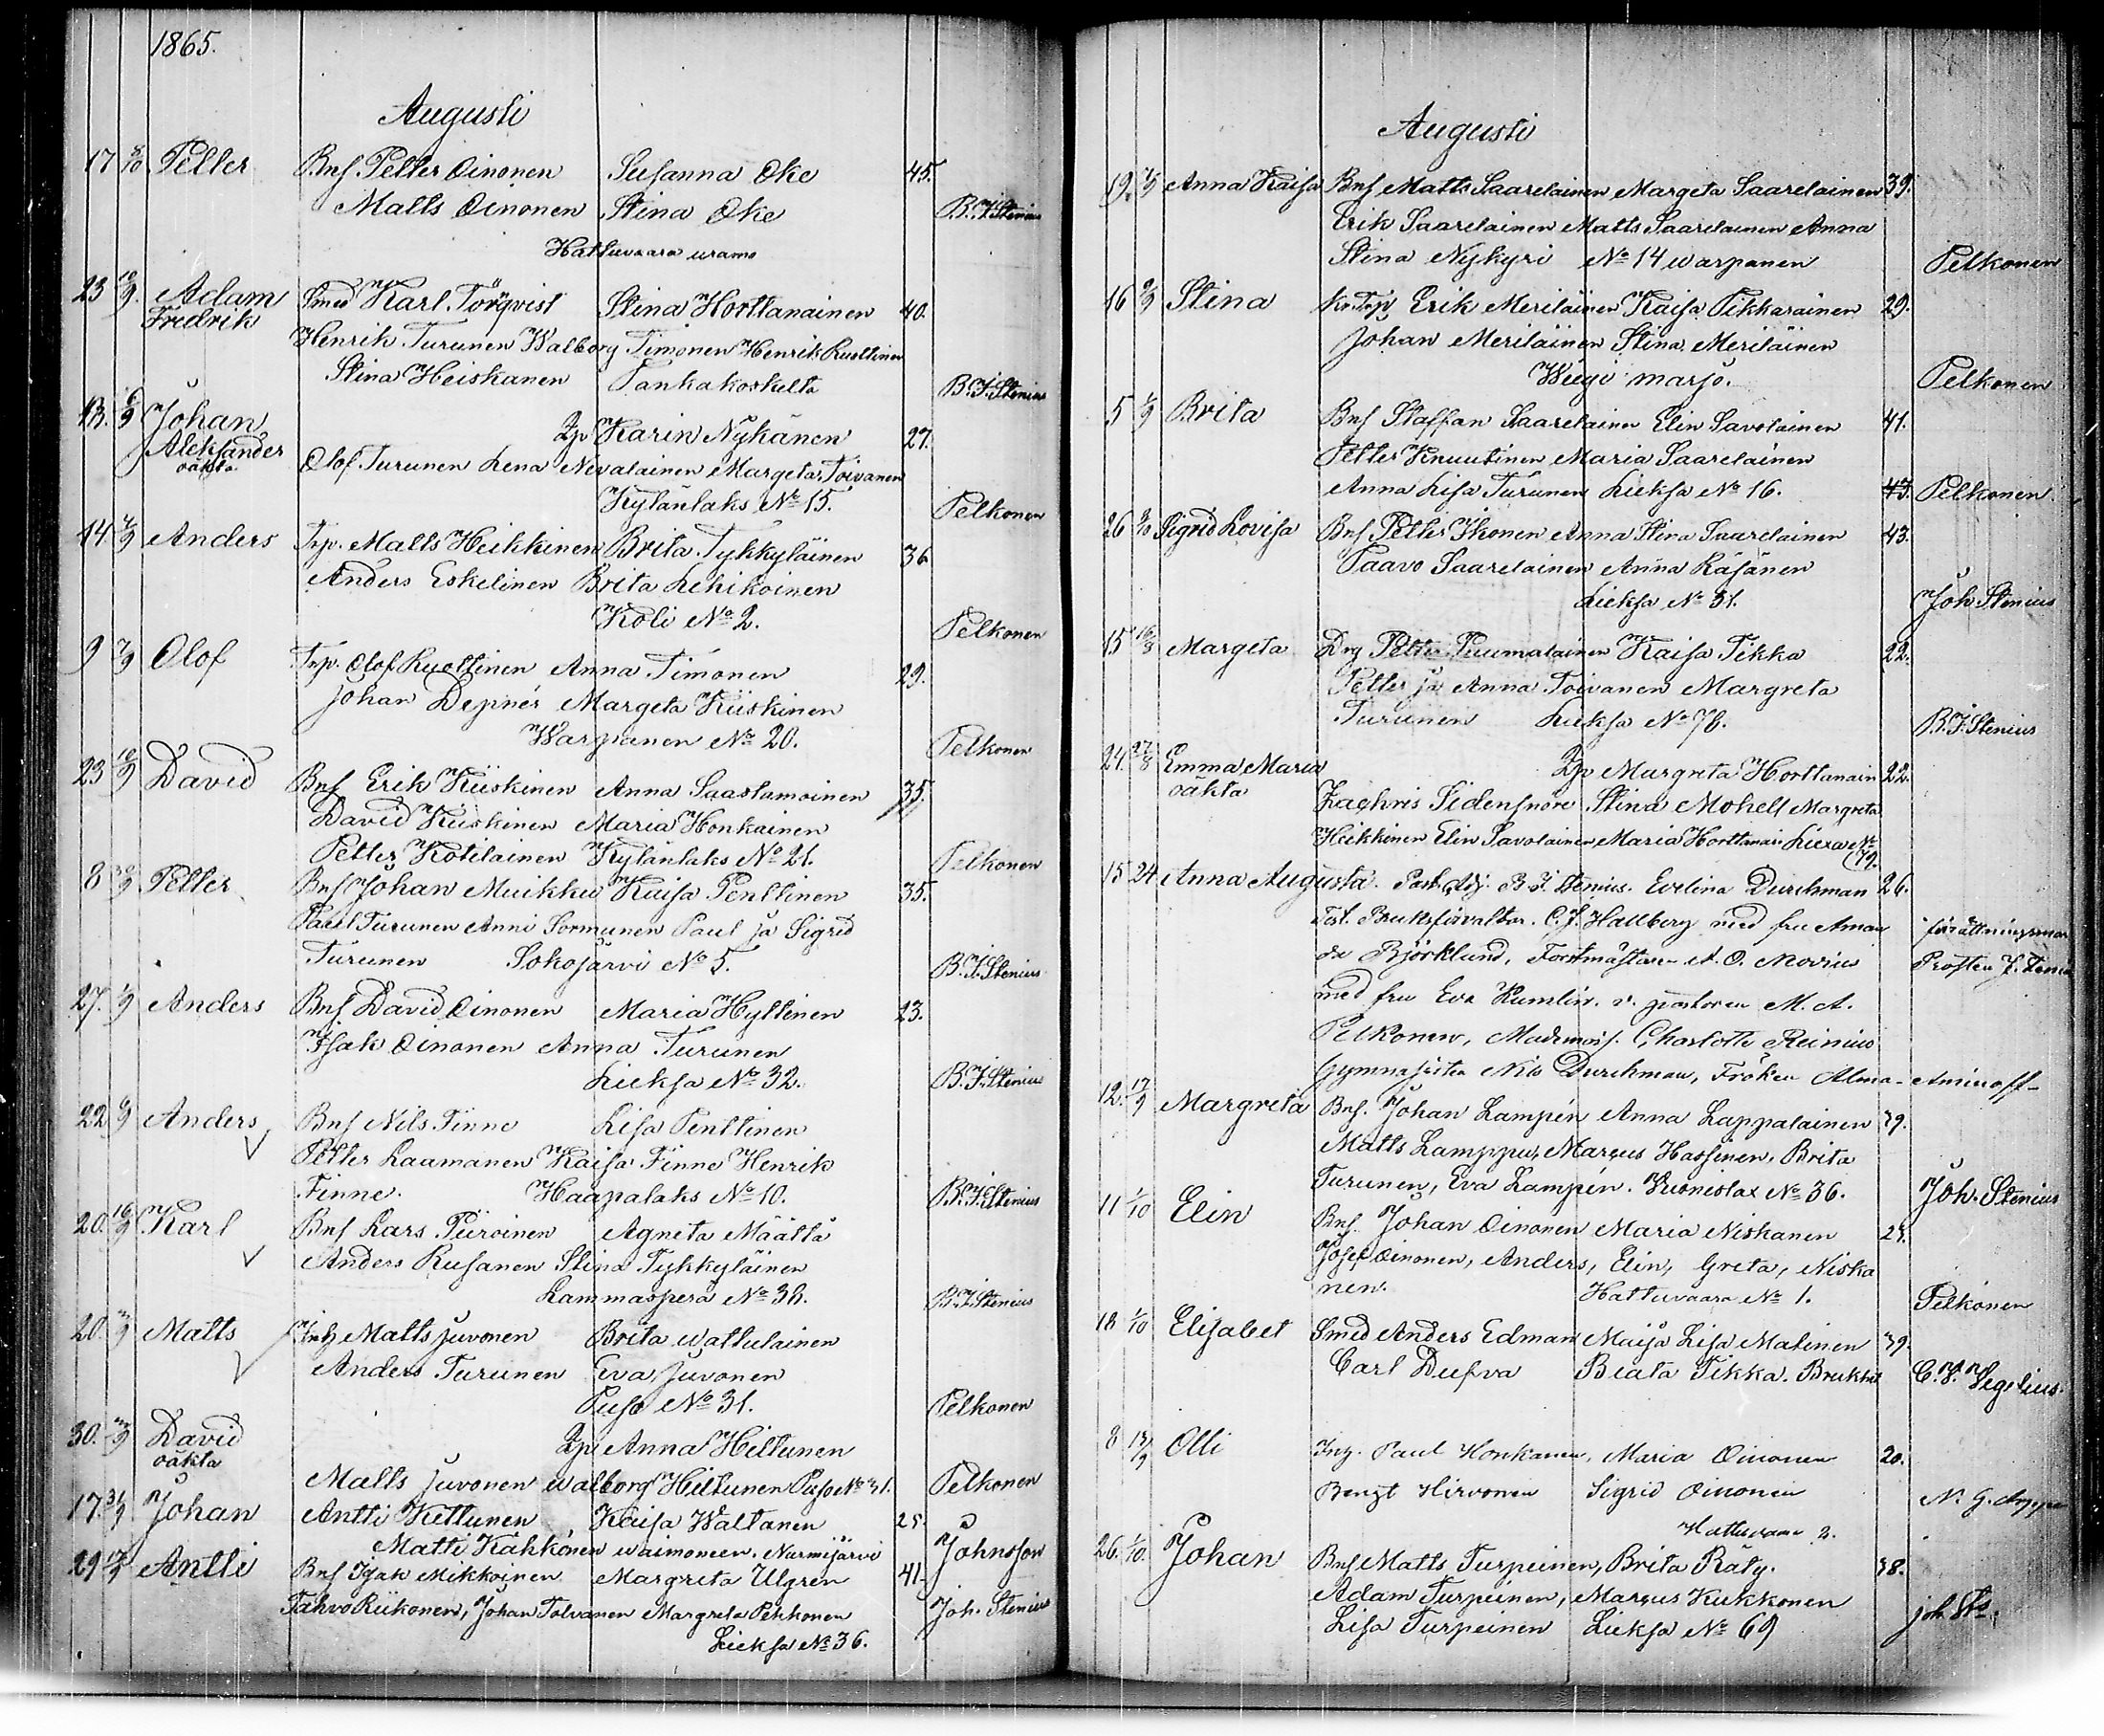 1865.
Augusti
17 8/10 Petter Bnf. Petter Oinonen Susanna Oke 45.
Matts Oinonen Stina Oke B. F. Stenius
Hattuvaara uramo
23 10/9. Adam Smed Karl Törqvist Stina Horttanainen 40.
Fredrik
Henrik Turunen Walborg Timonen Henrik Kuottinen
Stina Heiskanen Pankakoskelta B. F. Stenius
13. 6/9 Johan Zp Karin Nykänen 27.
Aleksander
oäkta Olof Turunen Lena Nevalainen Margeta Toivanen
Kylänlaks No 15. Pelkonen
14. 7/9 Anders Trp. Matts Heikkinen Brita Tykkyläinen 36
Anders Eskelinen Brita Lehikoinen
Koli No 2. Pelkonen
9 7/9 Olof Trp. Olof Kuottinen Anna Timonen 29.
Johan Depner Margeta Kiiskinen
Warpanen No 20. Pelkonen
23 10/9 David Bnf Erik Kiiskinen Anna Saastamoinen 35.
David Kiiskinen Maria Honkainen
Petter Kotilainen Kylänlaks No 21. Pelkonen
8 Petter Bnf Johan Muikku Kaisa Penttinen 35.
Paul Turunen Anni Sormunen Paul ja Sigrid
Turunen Sokojärvi No 5. B. F. Stenius
27. 1/9 Anders Bnf David Oinonen Maria Hyttinen 23.
Isak Oinonen Anna Turunen
Lieksa No 32. B. F. Stenius
22 Anders Bnf Nils Finne Lisa Penttinen
Petter Laamanen Kaisa Finne Henrik
Finne. Haapalaks No 10. B. F. Stenius
20. 16/9 Karl Bnf Lars Piiroinen Agneta Määttä
Anders Rusanen Stina Tykkyläinen
Lammasperä No 38. B. F. Stenius
20. Matts Matts Juvonen Brita Wattulainen
Anders Turunen Eva Juvonen
Puso No 31. Pelkonen
30. David Zp Anna Hiltunen
oäkta
Matts Juvonen Walborg Hiltunen Puso No 31. Pelkonen
17. Johan Antti Kettunen Kaisa Waltanen 25.
Matti Kähkönen Nurmijärvi Johnsson
29 Antti Bnf Isak Mikkoinen Margreta Ulgren 41.
Tahvo Riikonen, Johan Tolvanen Margreta Pekkonen Joh. Stenius
Lieksa No 36.
Augusti
19. Anna Kaisa Bnf Matts Saarelainen Margeta Saarelainen 39.
Erik Saarelainen Matts Saarelainen Anna
Stina Nykyri No 14 Warpanen Pelkonen
16 Stina Erik Meriläinen Kaisa Tikkarainen 29.
Johan Meriläinen Stina Meriläinen
Wiegi marjo. Pelkonen
5 1/9 Brita Bnf Staffan Saarelainen Elin Savolainen 41.
Petter Knuutinen Maria Saarelainen
Anna Lisa Turunen Lieksa No 16. 43. Pelkonen
26 Sigrid Lovisa Bnf Petter Ikonen Anna Stina Saarelainen 43.
Paavo Saarelainen Anna Räsänen
Lieksa No 31. Joh Stenius
15 16/8 Margeta Drg Petter Puumalainen Kaisa Tikka 22.
Petter ja Anna Toivanen Margreta
Turunen Lieksa No 78. B. F. Stenius
24. 27/8 Emma Maria Zp Margreta Horttanain 22.
oäkta Zachris Sidensnöre Stina Mohell Margreta
Heikkinen Elin Savolainen Maria Horttanai Liexa No
79.
15 24 Anna Augusta. Past. Adj. B. F. Stenius. Evelina Durchman 26.
Test. Bruksförvaltar. C. J. Hallberg med fru Aman förrättningsman
da Björklund, Forstmästaren A. O. Movius Prosten J. Stenius
med fru Eva Kumlin. v. pastoren M. A.
Pelkonen, Mademois. Charlotte Reinius
Gymnasisten Nils Durchman, Fröken Alma Aminoff
12. 17/9 Margreta Bnf. Johan Lampén Anna Lappalainen 39.
Matts Lamppu, Margus Hassinen, Brita
Turunen, Eva Lampén. Vuonislax No 36. Joh. Stenius
11 1/10 Elin Bnf. Johan Oinonen Maria Niskanen
Josef Oinonen, Anders, Elin, Greta, Niska
nen. Hattuvaara No 1. Pelkonen
18 1/10 Elisabet Smed Anders Edman Maija Lisa Matinen 39.
Carl Dufva Beata Tikka.
8 Olli Paul Honkanen, Maria Oinonen 20.
Bengt Hirvonen Sigrid Oinonen
Hattuvaara 2.
26. 1/10. Johan Bnf Matts Turpeinen, Brita Räty. 38.
Adam Turpeinen, Margus Kukkonen
Lisa Turpeinen Lieksa No 69 Joh. Sts.